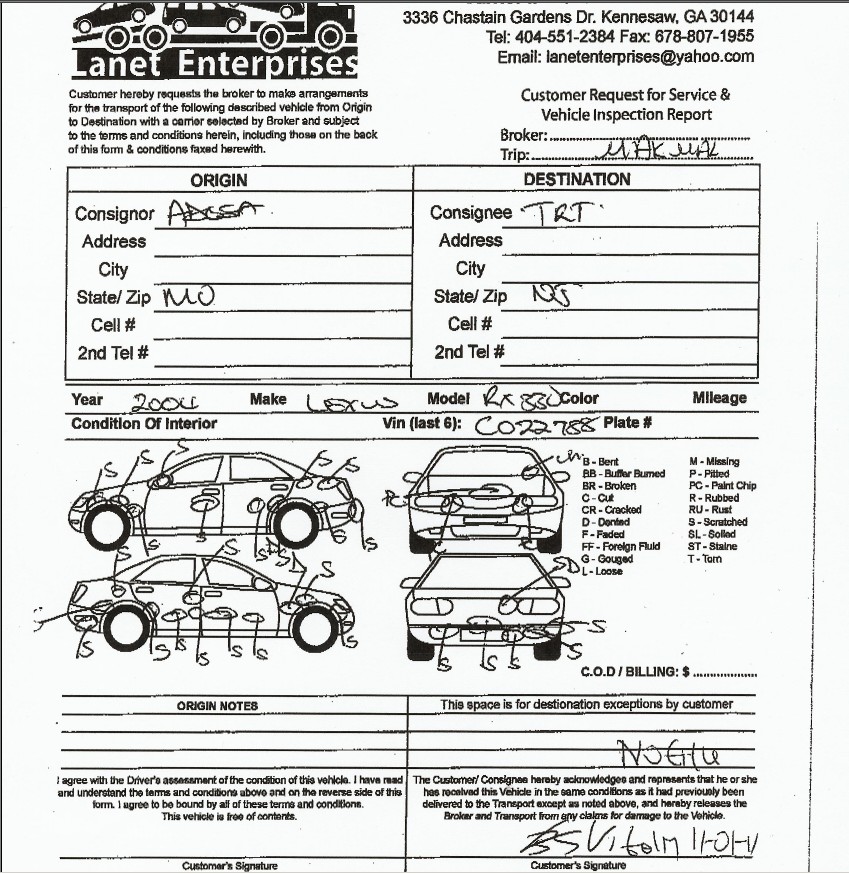 3336 Chastain Gardens Dr. Kennesaw, GA 30144
Tel: 404-551-2384 Fax: 678-807-1955
Email: lanetenterprises@yahoo.com
Lanet Enterprises
Customer hereby requests the broker to make arrangements
for the transport of the following described vehicle from Origin
to Destination with a carrier selected by Broker and subject
to the terms and conditions herein, including those on the back
of this form & conditions faxed herewith.
Customer Request for Service &
Vehicle Inspection Report
Broker:
Trip: MAKMAL
ORIGIN DESTINATION
Consignor ADESA Consignee TRT
Address Address
City City
State/ Zip MO State/ Zip NJ
Cell # Cell #
2nd Tel # 2nd Tel #
Year 2004 Make LEXUS Model RX 330 Color Mileage
Condition Of Interior Vin (last 6): C022788 Plate #
B - Bent M - Missing
BB - Buffer Burned P - Pitted
BR - Broken PC - Paint Chip
C - Cut R - Rubbed
CR - Cracked RU - Rust
D - Dented S - Scratched
F - Faded SL - Soiled
FF - Foreign Fluid ST - Stains
G - Gouged T - Torn
L - Loose
S S S S
S S S S
S S S
S S S S S S
SD
S S S S S
C.O.D / BILLING: $
ORIGIN NOTES This space is for destionation exceptions by customer
I agree with the Driver's assessment of the condition of this vehicle. I have read
and understand the terms and conditions above and on the reverse side of this
form. I agree to be bound by all of these terms and conditions.
This vehicle is free of contents.
The Customer/ Consignee hereby acknowledges and represents that he or she
has received this Vehicle in the same conditions as it had previously been
delivered to the Transport except as noted above, and hereby releases the
Broker and Transport from any claims for damage to the Vehicle.
Customer's Signature Customer's Signature